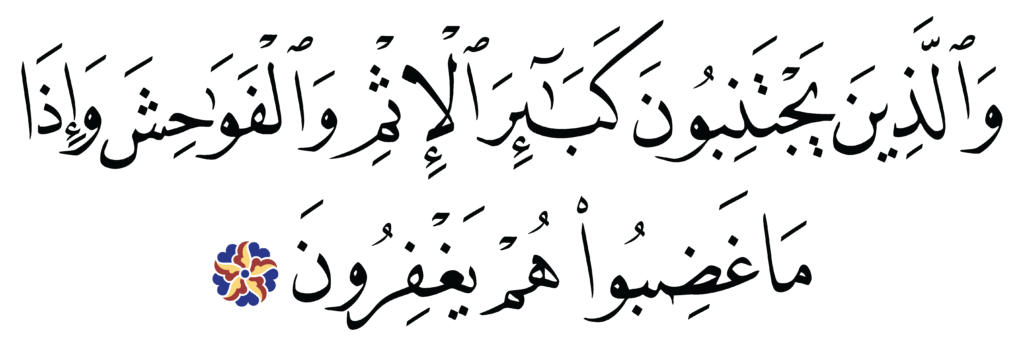 وَٱلَّذِينَ يَجْتَنِبُونَ كَبَـٰٓئِرَ ٱلْإِثْمِ وَٱلْفَوَٰحِشَ وَإِذَا
مَا غَضِبُوا۟ هُمْ يَغْفِرُونَ